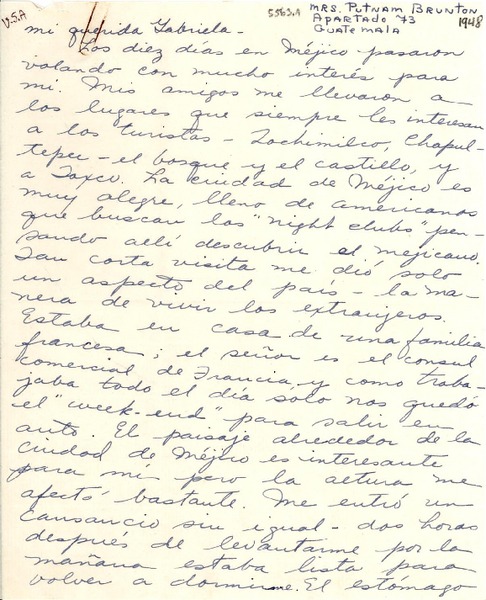 U.S.A
5563A
MRS. PUTNAM BRUNTON
APARTADO 73
GUATEMALA
1948
mi querida Gabriela -
Los diez días en Méjico pasaron
volando con mucho interés para
mi. Mis amigos me llevaron a-
los lugares que siempre les interesan
a los turistas - Zochimilco, Chapul-
tepec - el bosque y el castillo, y
a Taxco. La ciudad de Méjico es
muy alegre, lleno de americanos
que buscan los "night clubs" pen-
sando allí descubrir el mejicano.
Tan corta visita me dió solo
un aspecto del país - la ma-
nera de vivir los extranjeros.
Estaba en casa de una familia
francesa; el señor es el consul
comercial de Francia y como traba-
jaba todo el día solo nos quedó
el "week-end" para salir en
auto. El paisaje alrededor de la
ciudad de Méjico es interesante
para mi pero la altura me
afectó bastante. Me entró un
cansancio sin igual - dos horas
después de levantarme por la
mañana estaba lista para
volver a dormirme. El estómago